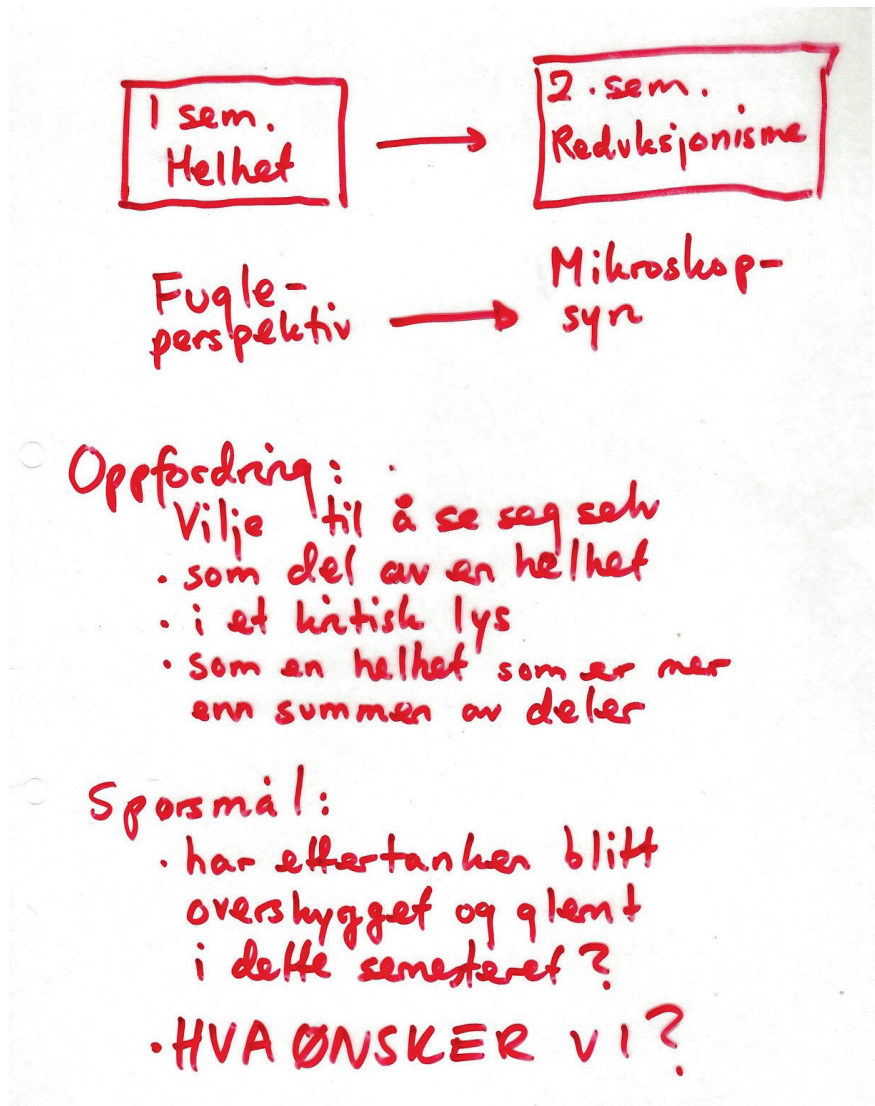 1 sem.
Helhet
2. sem.
Reduksjonisme
Fugle-
perspektiv
Mikroskop-
syn
Oppfordring:
Vilje til å se seg selv
• som del av en helhet
• i et kritisk lys
• som en helhet som er mer
enn summen av deler
Spørsmål:
• har ettertanken blitt
overskygget og glemt
i dette semesteret?
• HVA ØNSKER VI?